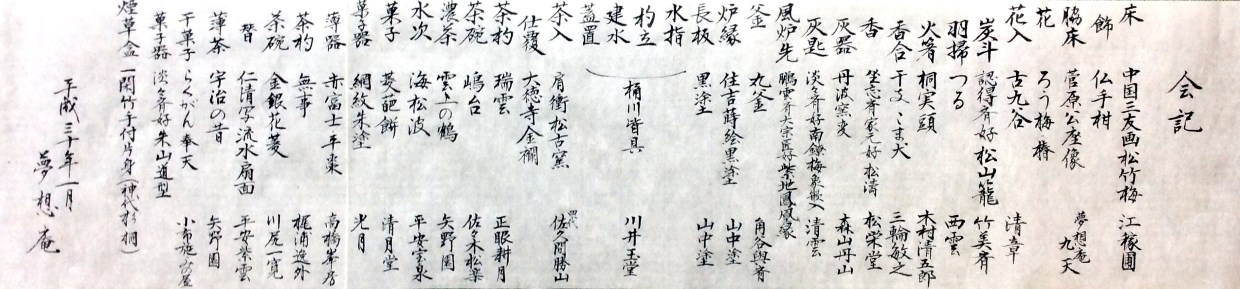 会記
床 中国三友画松竹梅 江稼圃
飾 仏手柑
脇床 菅原公座像 夢想庵 九天
花 ろう梅 椿
花入 古九谷 清章
炭斗 認得斉好 松山籠 竹美斉
羽掃 つる 西雲
火箸 桐実頭 木村清五郎
香合 干支 こま犬 三輪敏之
香 坐忘斉家元好 松濤 松栄堂
灰器 丹波窯変 森山丹山
灰匙 淡々斉好南鐐梅象嵌入 清雲
風炉先 鵬雲斉大宗匠好紫地鳳凰縁
釜 丸釜 角谷與斉
炉縁 住吉蒔絵黒塗 山中塗
長板 黒塗 山中塗
水指
杓立
建水 桶川皆具 川井玉堂
蓋置
茶入 肩衝松古窯 四代 佐々間勝山
仕覆 大徳寺金襴
茶杓 瑞雲 正眼耕月
茶碗 嶋台 佐々木松楽
濃茶 雲上の鶴 矢野園
水次 海松波 平安宝泉
菓子 菱葩餅 清月堂
菓子器 網紋朱塗 光月
薄器 赤富士 平棗 高橋
茶杓 無事 梶浦逸外
茶碗 金銀花菱 川尻一寛
替 仁清写流水扇面 平安紫雲
薄茶 宇治の昔 矢野園
干菓子 らくがん 奉天 小布施
菓子器 淡々斉好 朱山道型
煙草盆 一閑竹手付片身(神代杉 桐)
平成三十年一月
夢想庵